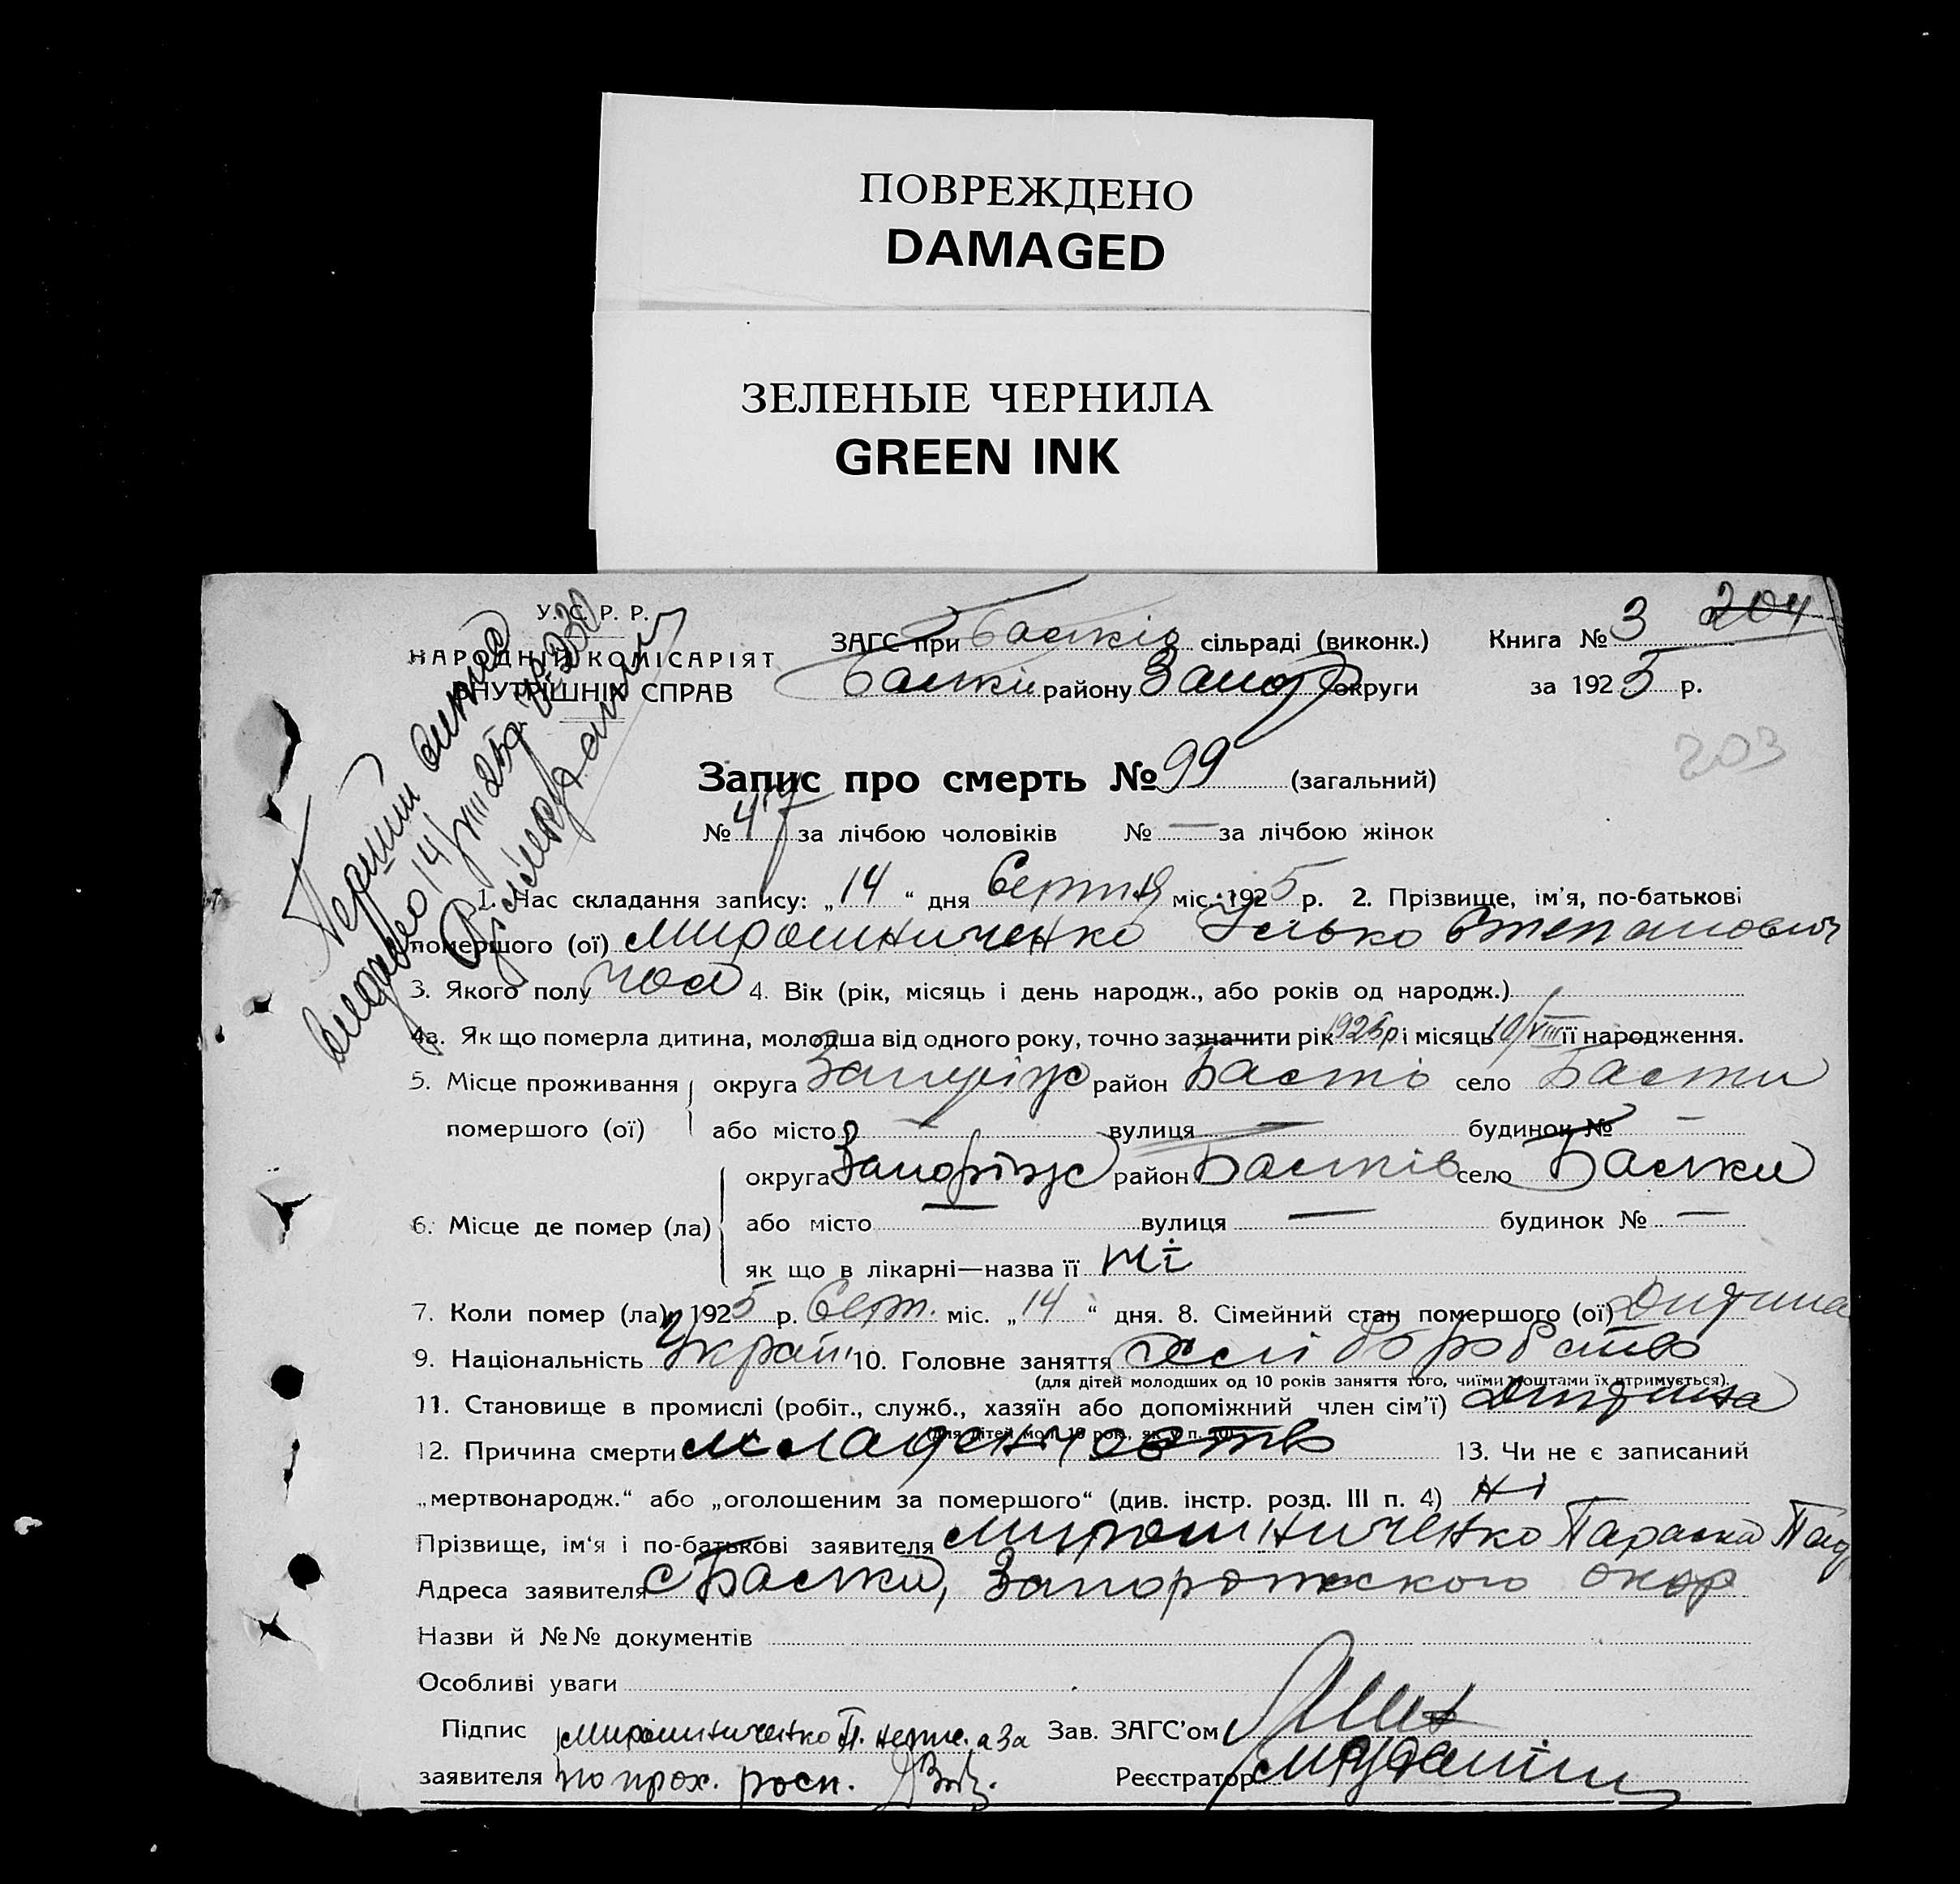 ПОВРЕЖДЕНО
DAMAGED
ЗЕЛЕНЫЕ ЧЕРНИЛА
GREEN INK
У. С. Р. Р.
НАРОДНІЙ КОМІСАРІЯТ
ВНУТРІШНІХ СПРАВ
ЗАГС при сільраді (виконк.)
району Запор округи
Книга № 3 204
за 1925 р.
203
Перший витяг
видано 14/VIII 25р. №
Запис про смерть № 99 (загальний)
№ 47 за лічбою чоловіків № — за лічбою жінок
1. Час складання запису: „14“ дня Серпня міс. 1925 р. 2. Прізвище, ім'я, по-батькові
помершого (ої) Мирошниченко Ілько Степанович
3. Якого полу чол 4. Вік (рік, місяць і день народж., або років од народж.)
4а. Як що померла дитина, молодша від одного року, точно зазначити рік 1925р і місяць 10/VIII її народження.
5. Місце проживання округа Запоріж район село
помершого (ої) або місто — вулиця — будинок № —
округа Запоріж район село
6. Місце де помер (ла) або місто — вулиця — будинок № —
як що в лікарні—назва її ні
7. Коли помер (ла) 1925 р. Серп. міс. „14“ дня. 8. Сімейний стан помершого (ої) Дитина
9. Національність Україн. 10. Головне заняття
(для дітей молодших од 10 років заняття того, чиїми коштами їх утримується).
11. Становище в промислі (робіт., служб., хазяїн або допоміжний член сім'ї) Дитина
(для дітей мол. 10 рок., як у п. 10)
12. Причина смерти младенчество 13. Чи не є записаний
„мертвонародж.“ або „оголошеним за помершого“ (див. інстр. розд. III п. 4) ні
Прізвище, ім'я і по-батькові заявителя Мирошниченко Параска
Адреса заявителя с Запорожского окр
Назви й №№ документів
Особливі уваги
Підпис Мирошниченко П. а за Зав. ЗАГС'ом
заявителя росп. Реєстратор